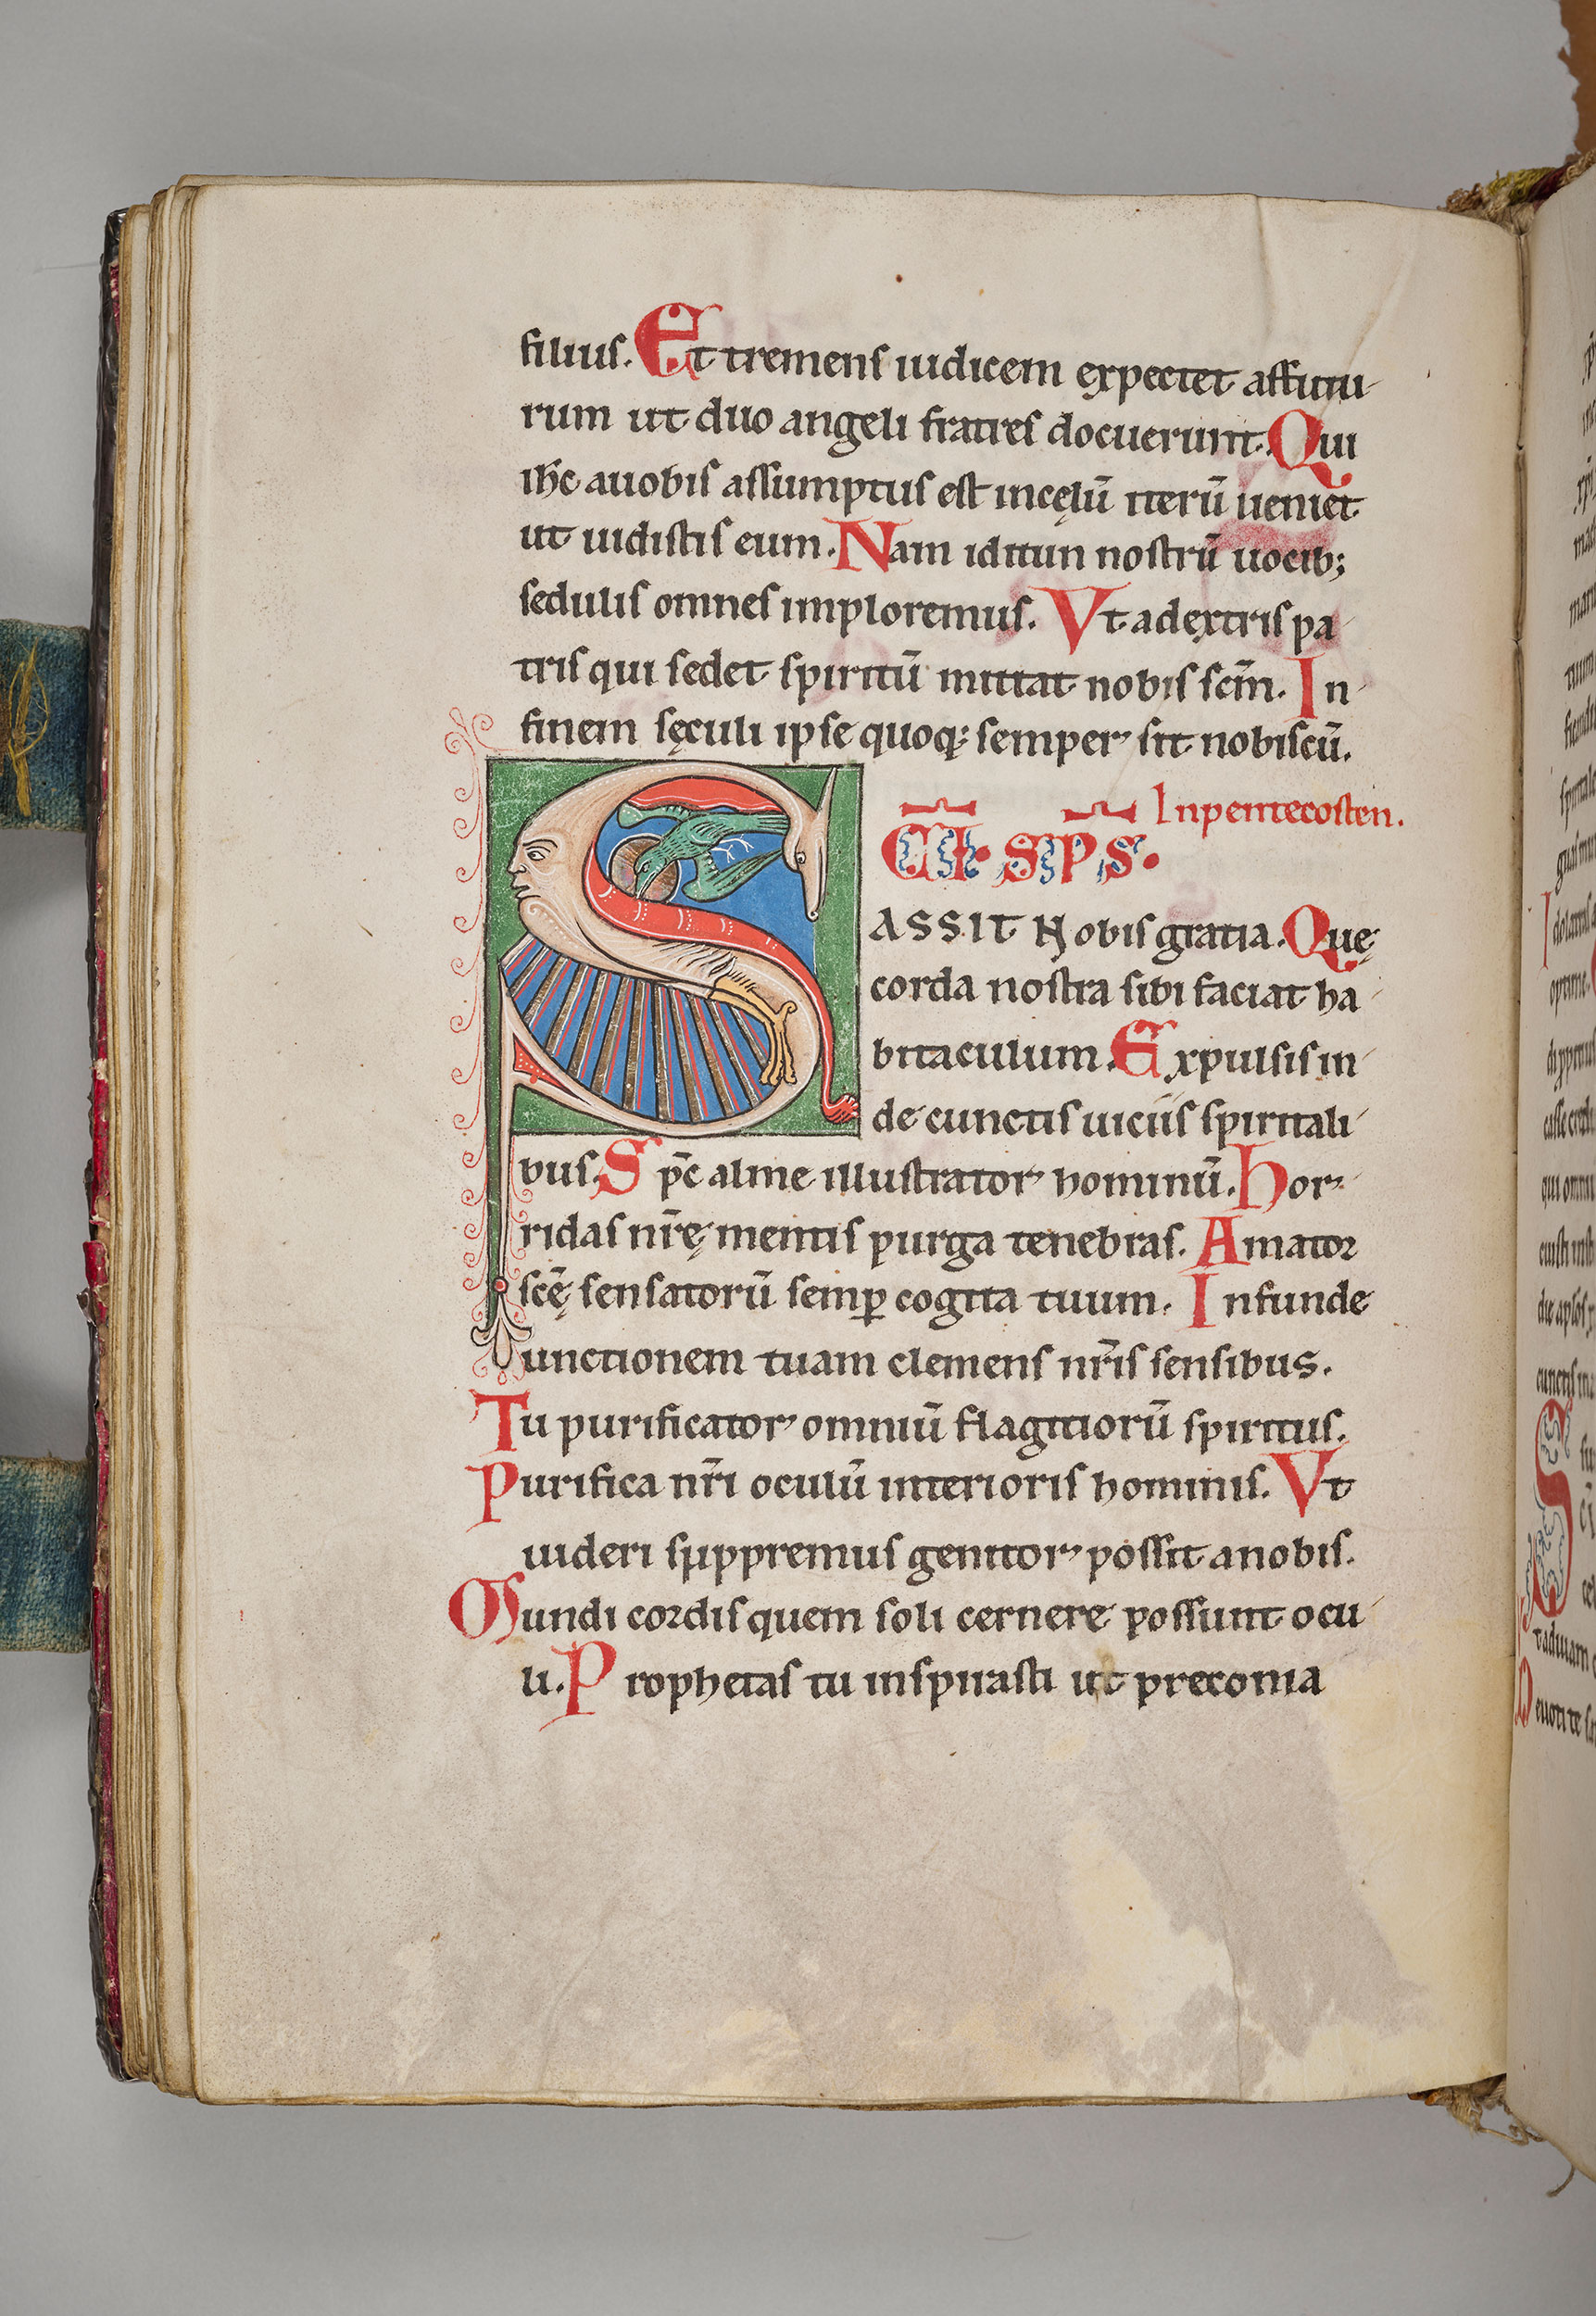 filiuſ. Et tremenſ iudicem expectet affutu
rum ut duo angeli fratreſ docuerunt. Qui
ihc̄ auobiſ aſſumptuſ eſt incęlū iterū ueniet
ut uidiſtiſ eum. Nam iditun noſtrū uocib;
ſeduliſ omneſ imploremuſ. Vt adextriſ pa
triſ qui ſedet ſpiritū mittat nobiſ ſcm̄. In
finem ſęculi ipſe quoq; ſemper ſit nobiſcū.
Inpentecoſten.
SCĪ. SP̄S.
ASSIT Nobiſ gratia. Quę
corda noſtra ſibi faciat ha
bitaculum. Expulſiſ in
de cunctiſ uiciiſ ſpiritali
buſ. Sp̄c alme illuſtrator hominū. Hor
ridaſ nr̄ę mentiſ purga tenebraſ. Amator
ſcē ſenſatorū ſemp̱ cogita tuum. Infunde
unctionem tuam clemenſ nr̄iſ ſenſibus.
Tu purificator omniū flagitiorū ſpirituſ.
Purifica nr̄i oculū interioriſ hominiſ. Vt
uideri ſuppremuſ genitor poſſit anobiſ.
Mundi cordiſ quem ſoli cernere poſſunt ocu
li. Prophetaſ tu inſpiraſti ut preconia